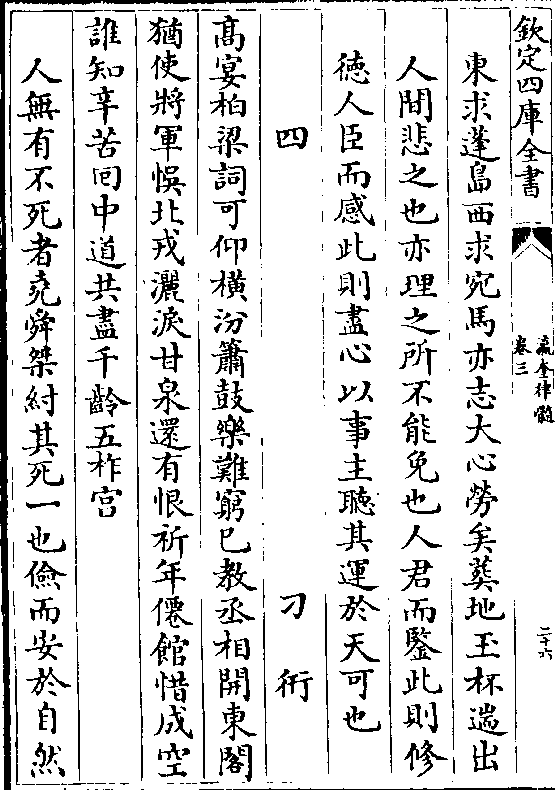 欽定四庫全書
瀛奎律髓
卷三
二十六
東求蓬島西求宛馬亦志大心勞矣葬地玉杯遄出
人間悲之也亦理之所不能免也人君而鑒此則修
徳人臣而感此則盡心以事主聽其運於天可也
四 刁衎
髙宴柏梁詞可仰横汾簫鼓樂難窮已教丞相開東閣
猶使將軍悞北戎灑淚甘泉還有恨祈年僊館惜成空
誰知辛苦囘中道共盡千齡五柞宫
人無有不死者堯舜桀紂其死一也儉而安於自然